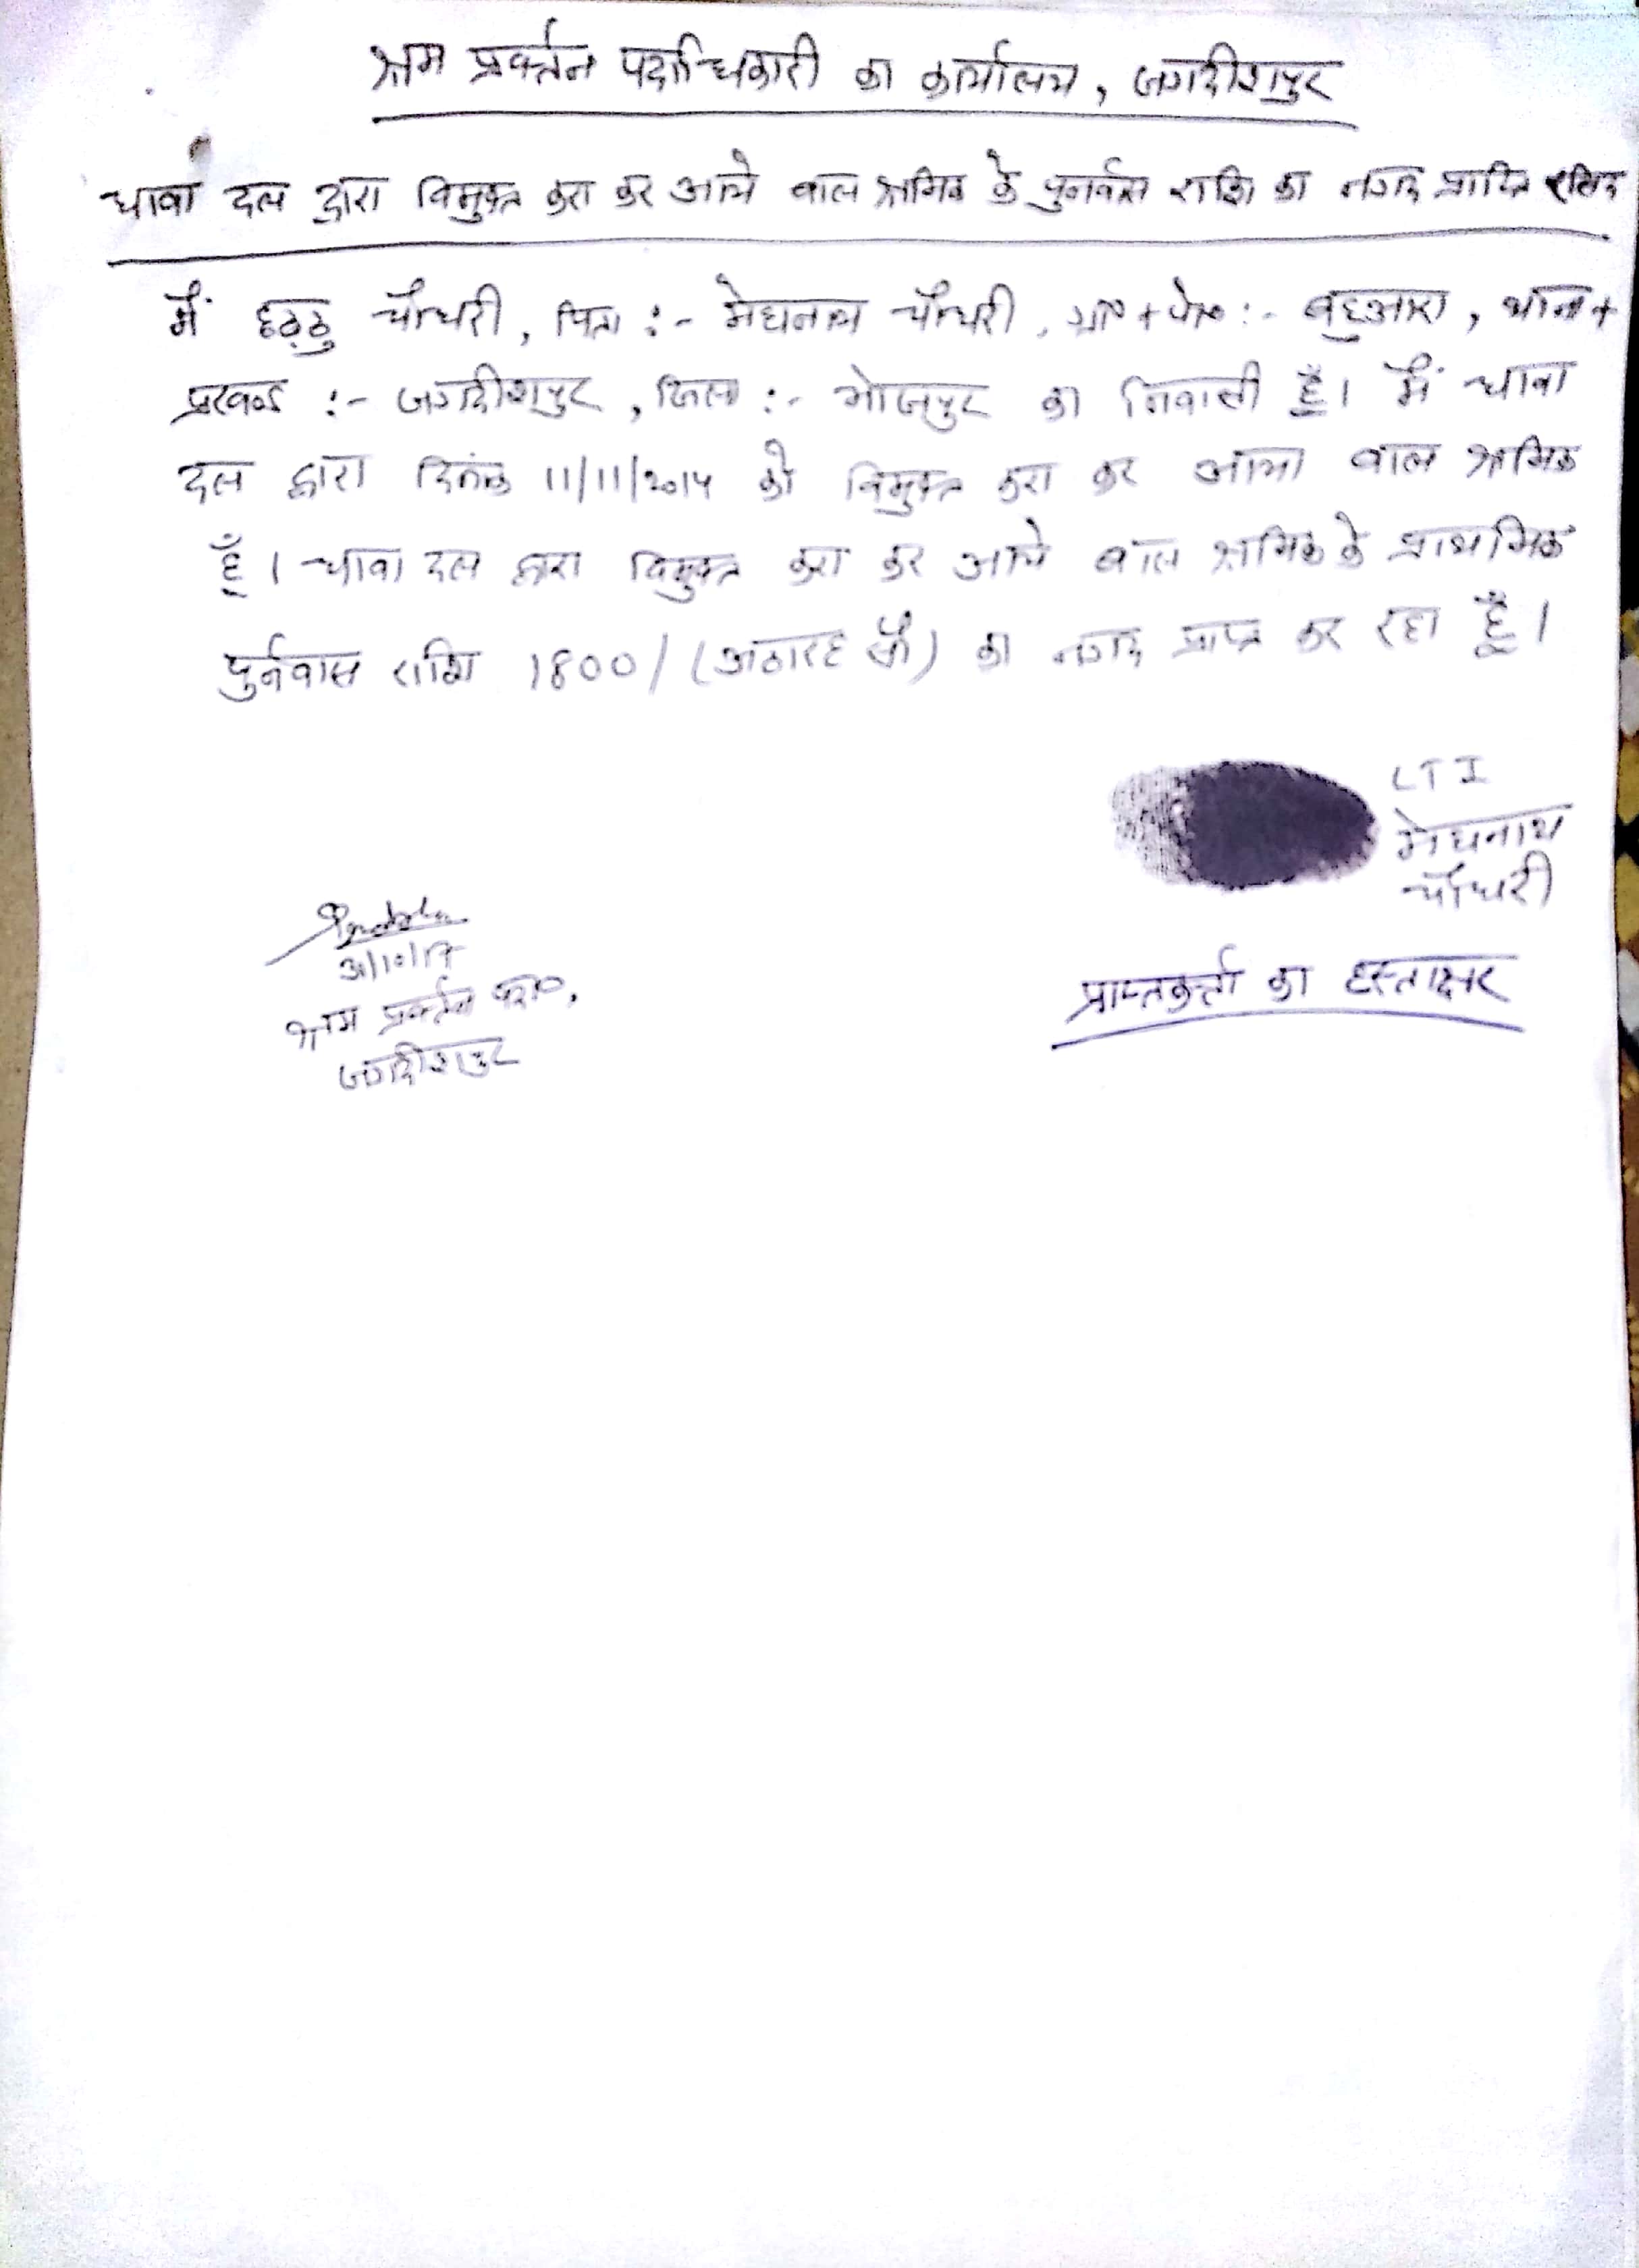 श्रम प्रर्वतन पदाधिकारी का कार्यालय, जगदीशपुर
धावा दल द्वारा विमुक्त करा कर आये बाल श्रमिक के पुनर्वास राशि का नगद प्राप्ति रसिद
मैं चौधरी, पिता :- मेघनाथ चौधरी, ग्रा०+पो० :- बहुआरा, थाना+
प्रखण्ड :- जगदीशपुर, जिला :- भोजपुर का निवासी हूँ। मैं धावा
दल द्वारा दिनांक 11/11/2014 को विमुक्त करा कर आया बाल श्रमिक
हूँ। धावा दल द्वारा विमुक्त करा कर आये बाल श्रमिक के प्राथमिक
पुर्नवास राशि 1800/ (अठारह सौ) का नगद प्राप्त कर रहा हूँ।
LTI
मेघनाथ
चौधरी
प्राप्तकर्ता का हस्ताक्षर
31/10/17
श्रम प्रर्वतन पदा०,
जगदीशपुर